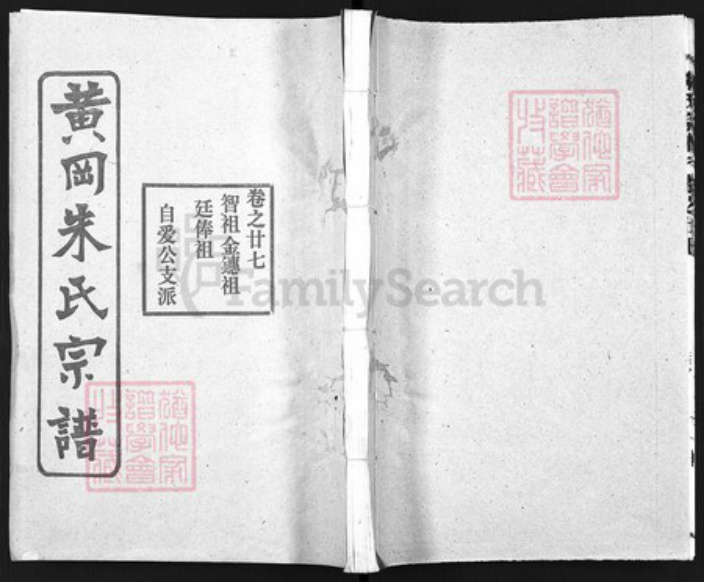 黄岡朱氏宗譜
卷之廿七
智祖金鐩祖
廷俸祖
自爱公支派
猶他家
譜學會
收藏
猶他家
譜學會
收藏
FamilySearch